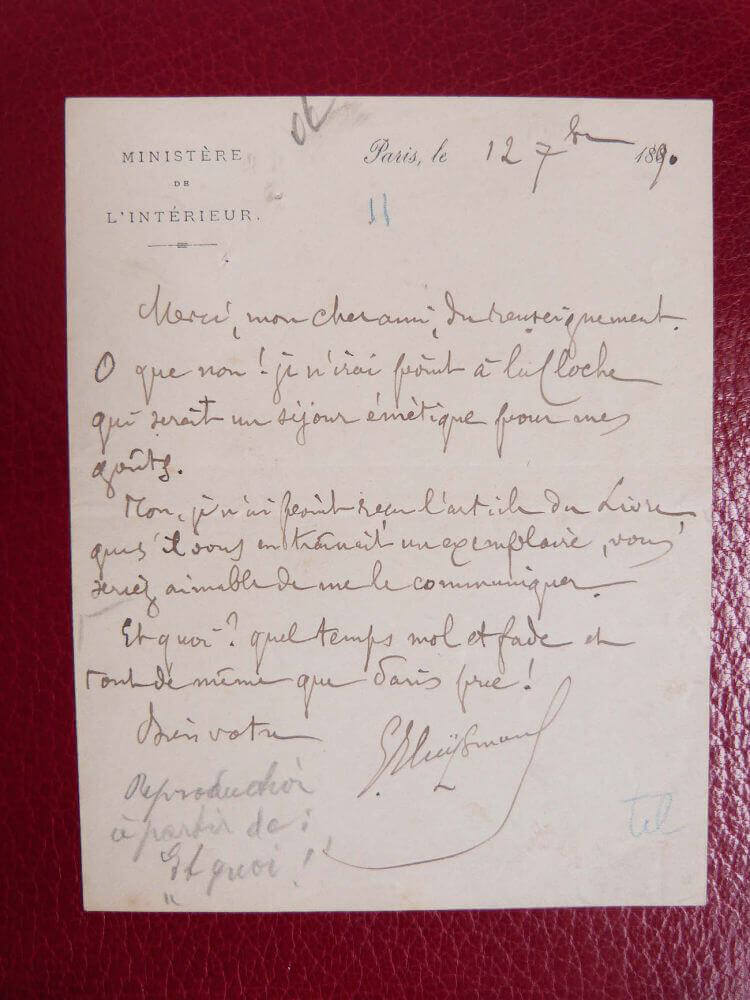 OK
MINISTÈRE
DE
L'INTÉRIEUR.
Paris, le 12 7bre 1890.
11
Merci, mon cher ami, du renseignement.
O que non ! je n'irai point à la Cloche
qui serait un séjour émétique pour mes
goûts.
Non, je n'ai point reçu l'article du Livre
que s'il vous en trainait un exemplaire, vous
seriez aimable de me le communiquer.
Et quoi ? quel temps mol et fade et
tout de même que Paris pue !
Bien votre
G Huÿsmans
Reproduction
à partir de :
"Et quoi !"
Tel